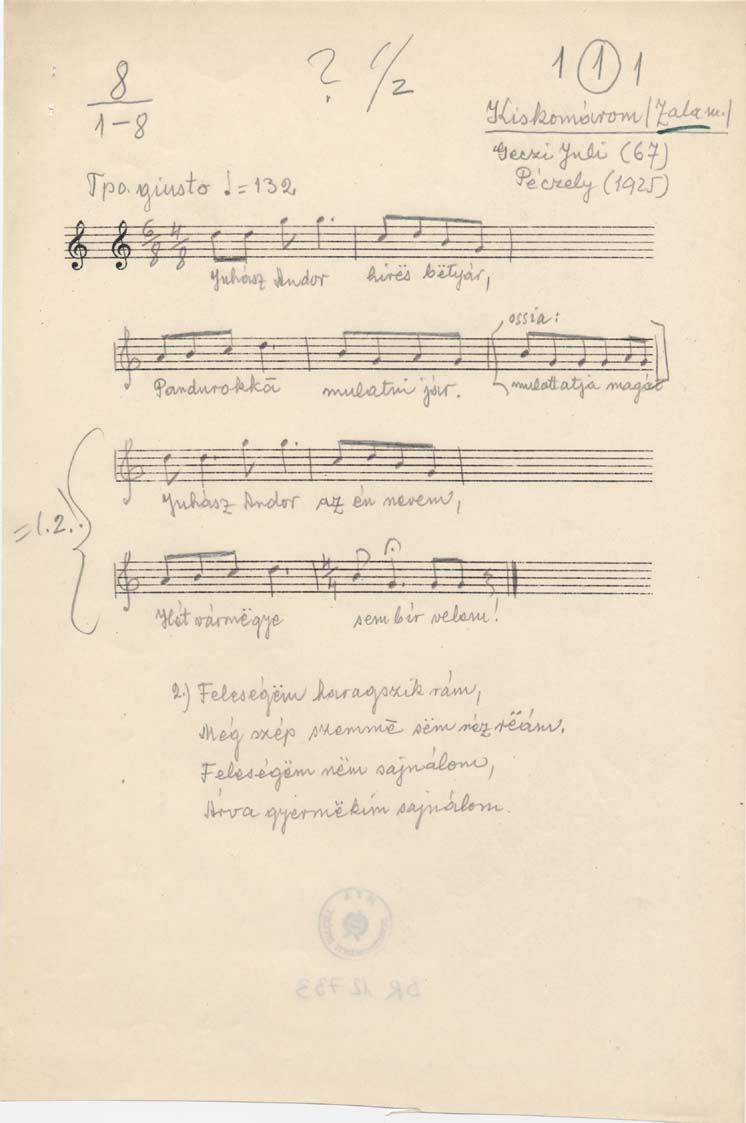 8
1-8
? C/2
1 1 1
Kiskomárom (Zala m.)
Geczi Juli (67)
Péczely (1925)
Tpo. giusto ♩=132
6/8 4/8
Juhász Andor hirës bëtyár,
ossia:
Pandurokkā mulatni jár.
mulattatja magát
=1.2.
Juhász Andor az én nevem,
4/4
Hét vármëgye sem bír velem!
2.) Feleségëm haragszik rám,
Még szép szemmē sëm néz rëám.
Feleségëm nëm sajnálom,
Árva gyermëkim sajnálom.
BR 12733